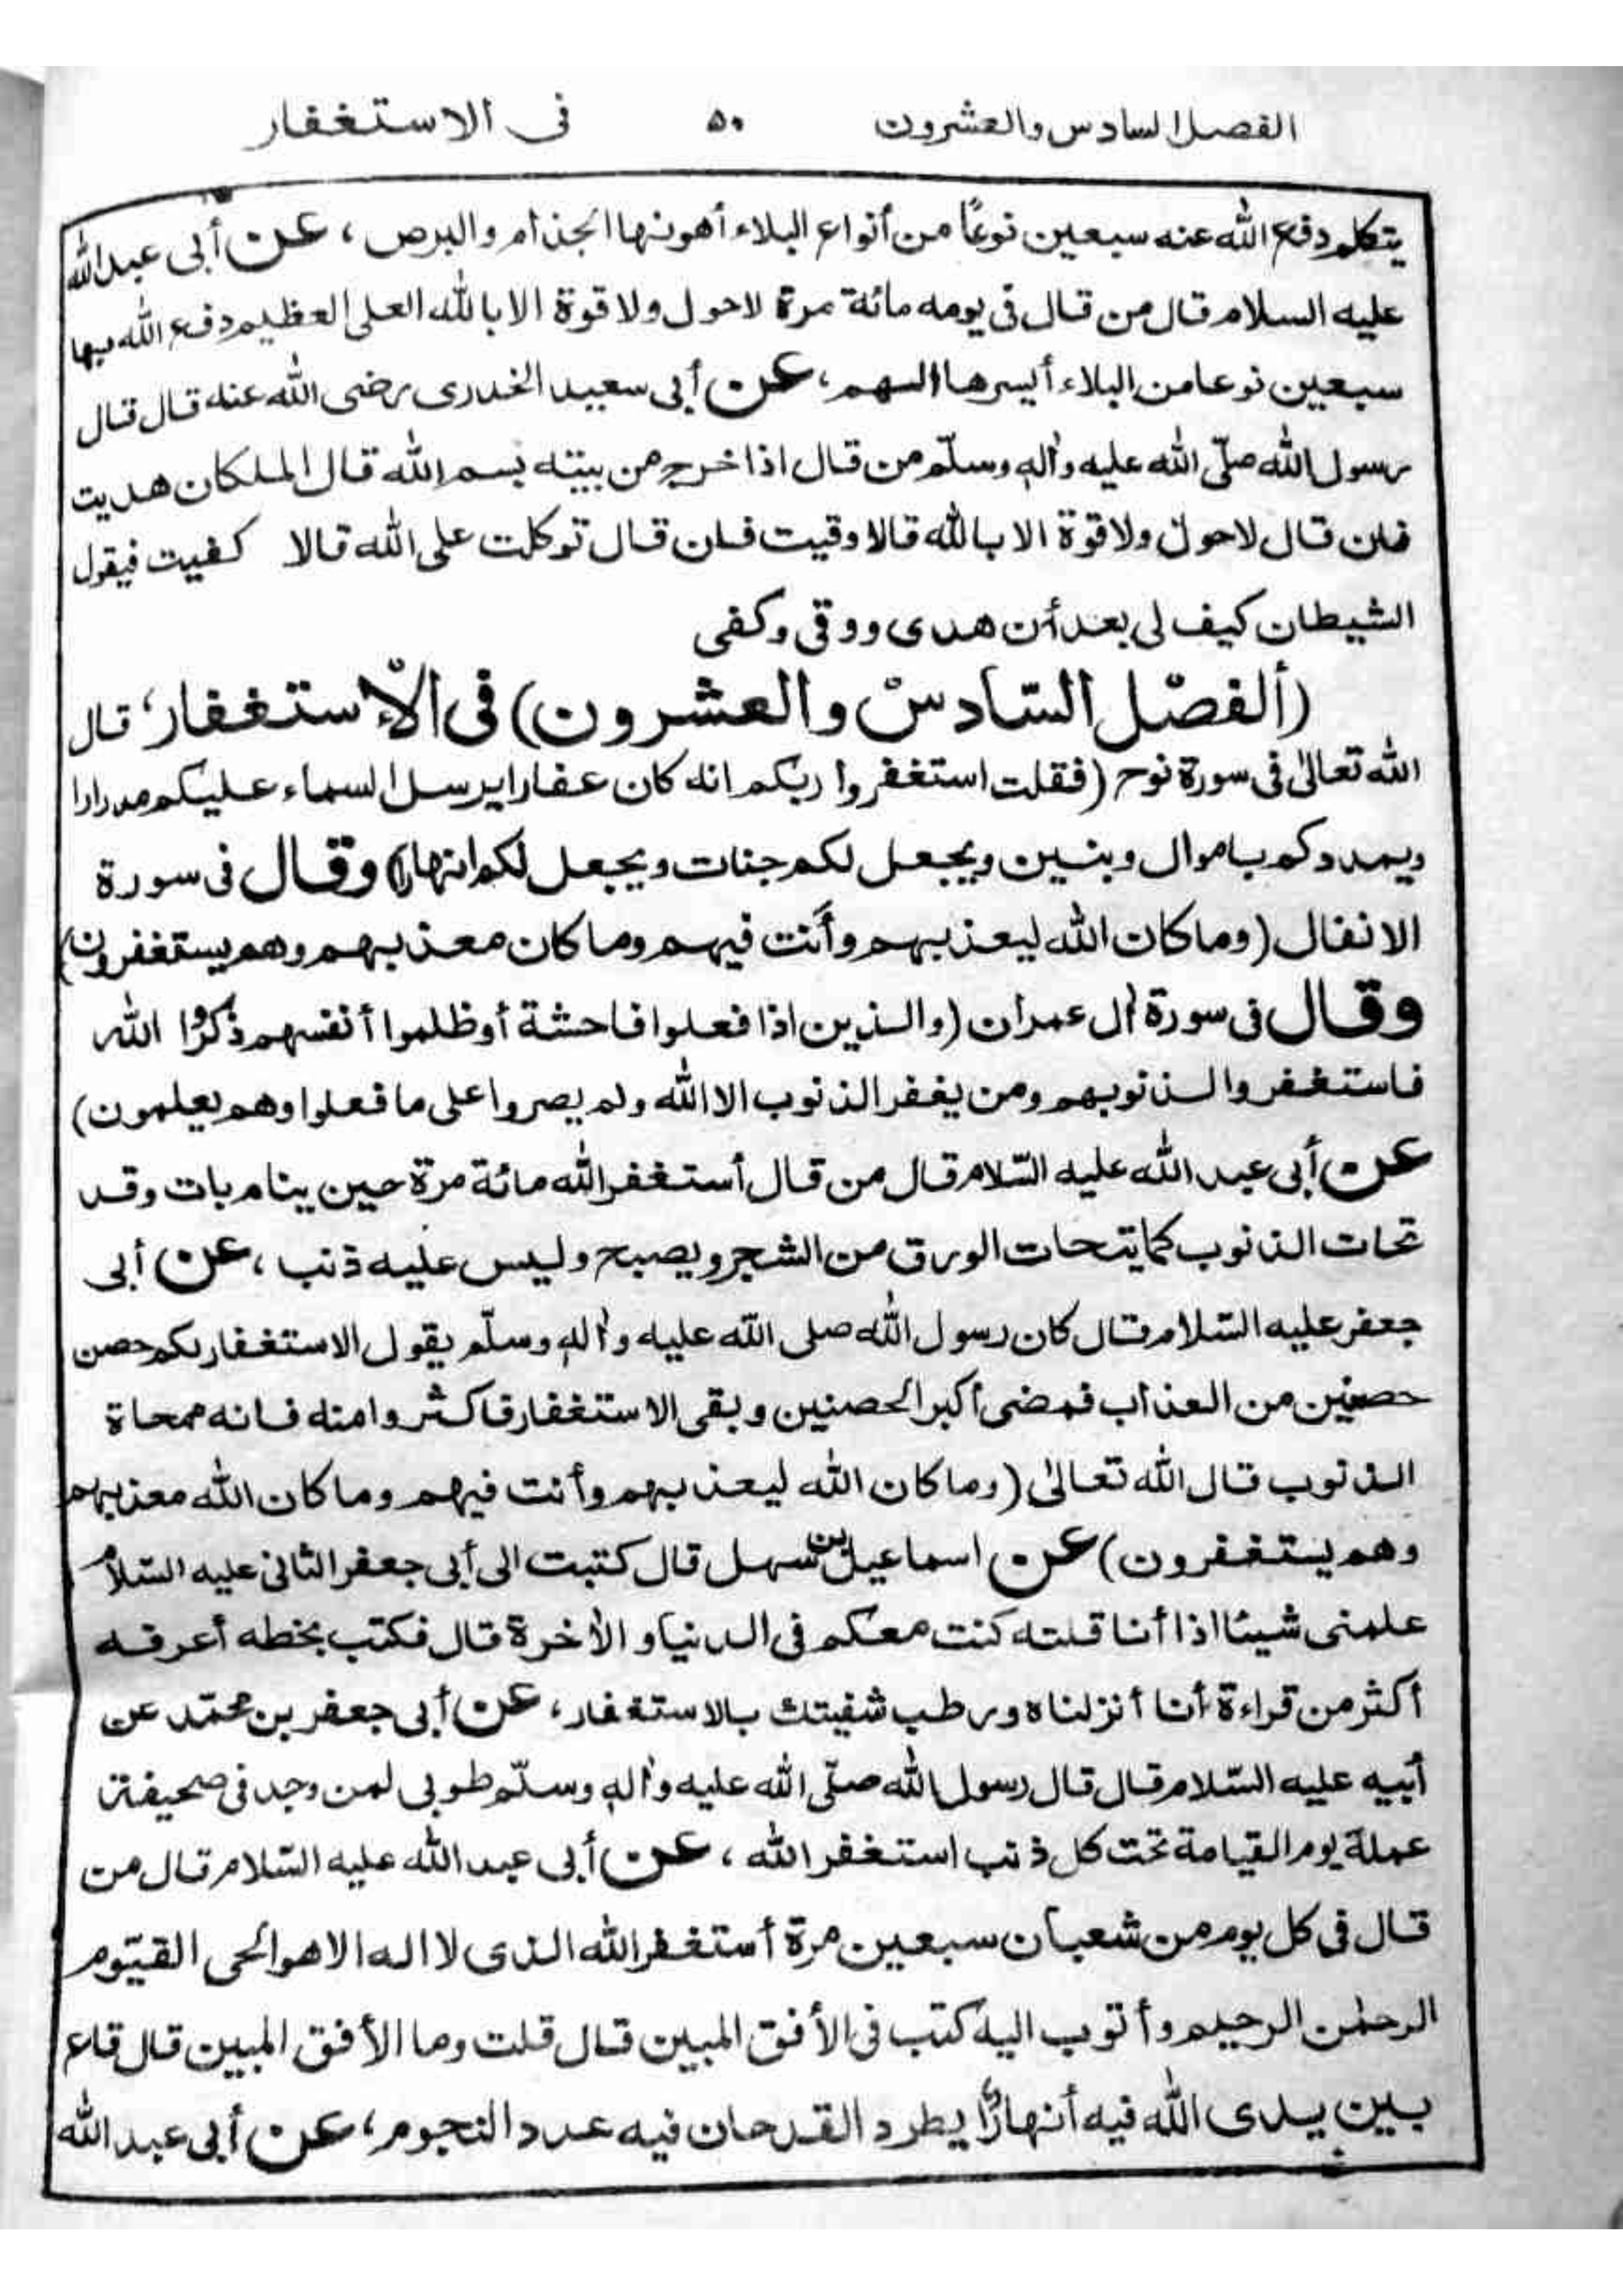 الفصل السادس والعشرون ٥٠ فى الاستغفار
يتكلم دفع الله عنه سبعين نوعًا من أنواع البلاء أهونها الجذام والبرص ، عن أبى عبد الله
عليه السلام قال من قال فى يومه مائة مرة لاحول ولا قوة الا بالله العلى العظيم دفع الله بها
سبعين نوعا من البلاء أيسرها الهم ، عن أبى سعيد الخدرى رضى الله عنه قال قال
رسول الله صلّى الله عليه واٰله وسلّم من قال اذا خرج من بيته بسم الله قال الملكان هديت
فان قال لاحول ولا قوة الا بالله قالا وقيت فان قال توكلت على الله قالا كفيت فيقول
الشيطان كيف لى بعد أن هدى ووقى وكفى
(ألفصّل السّادسْ والعشرون) فى الْاستغفار، قال
الله تعالىٰ فى سورة نوح (فقلت استغفروا ربكم انه كان غفارا يرسل السماء عليكم مدرارا
ويمددكم باموال وبنين ويجعل لكم جنات ويجعل لكم انهارا) وقال فى سورة
الانفال (وما كان الله ليعذبهم وأنت فيهم وما كان معذبهم وهم يستغفرون)
وقال فى سورة اٰل عمران (والذين اذا فعلوا فاحشة أو ظلموا أنفسهم ذكروا الله
فاستغفروا لذنوبهم ومن يغفر الذنوب الا الله ولم يصروا على ما فعلوا وهم يعلمون)
عن أبى عبد الله عليه السّلام قال من قال أستغفر الله مائة مرة حين ينام بات وقد
تحات الذنوب كما يتحات الورق من الشجر ويصبح وليس عليه ذنب ، عن أبى
جعفر عليه السّلام قال كان رسول الله صلى الله عليه واٰله وسلّم يقول الاستغفار لكم حصن
حصنين من العذاب فمضى أكبر الحصنين وبقى الاستغفار فاكثروا منه فانه ممحاة
الذنوب قال الله تعالىٰ (وما كان الله ليعذبهم وأنت فيهم وما كان الله معذبهم
وهم يستغفرون) عن اسماعيل بن سهل قال كتبت الى أبى جعفر الثانى عليه السّلام
علمنى شيئا اذا أنا قلته كنت معكم فى الدنيا والاٰخرة قال فكتب بخطه أعرفه
أكثر من قراءة أنا أنزلناه ورطب شفيتك بالاستغفار ، عن أبى جعفر بن محمّد عن
أبيه عليه السّلام قال قال رسول الله صلّى الله عليه واٰله وسلّم طوبى لمن وجد فى صحيفة
عملة يوم القيامة تحت كل ذنب استغفر الله ، عن أبى عبد الله عليه السّلام قال من
قال فى كل يوم من شعبان سبعين مرة أستغفر الله الذى لا اله الا هو الحى القيّوم
الرحمٰن الرحيم وأتوب اليه كتب فى الأفق المبين قال قلت وما الأفق المبين قال قاع
بين يدى الله فيه أنهارًا يطرد القدحان فيه عدد النجوم ، عن أبى عبد الله